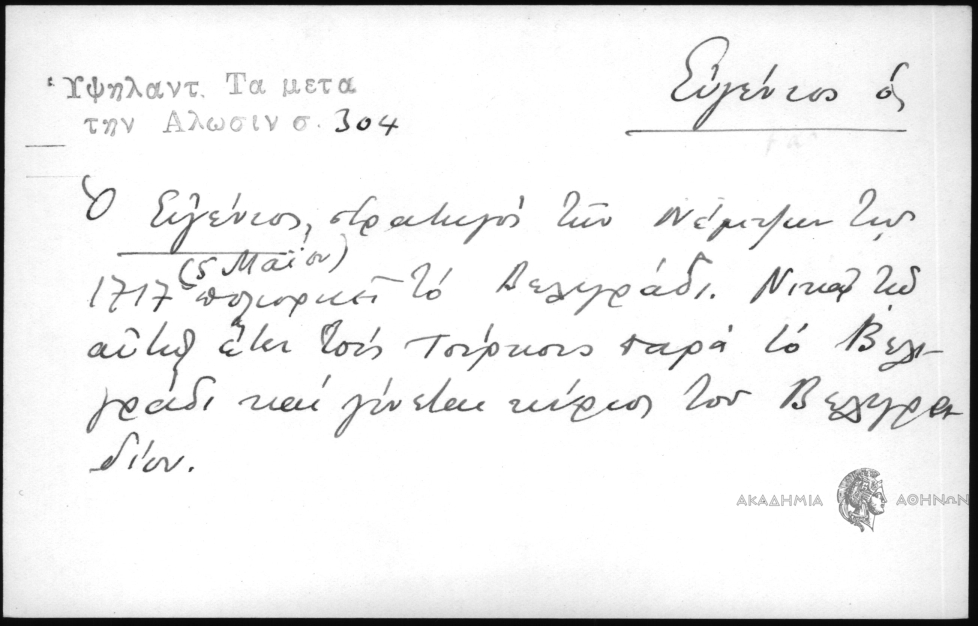 Ὑψηλαντ. Τα μετα
την Αλωσιν σ. 304
Εὐγένιος ὁ
Ὁ Εὐγένιος, στρατηγός τῶν Νέμτζων τῷ
(5 Μαΐου)
1717 πολιορκεῖ τό Βελιγράδι. Νικᾷ τῷ
αὐτῷ ἔτει τούς Τούρκους παρά τό Βελι-
γράδι καί γίνεται κύριος του Βελιγρα
δίου.
ΑΚΑΔΗΜΙΑ ΑΘΗΝΩΝ